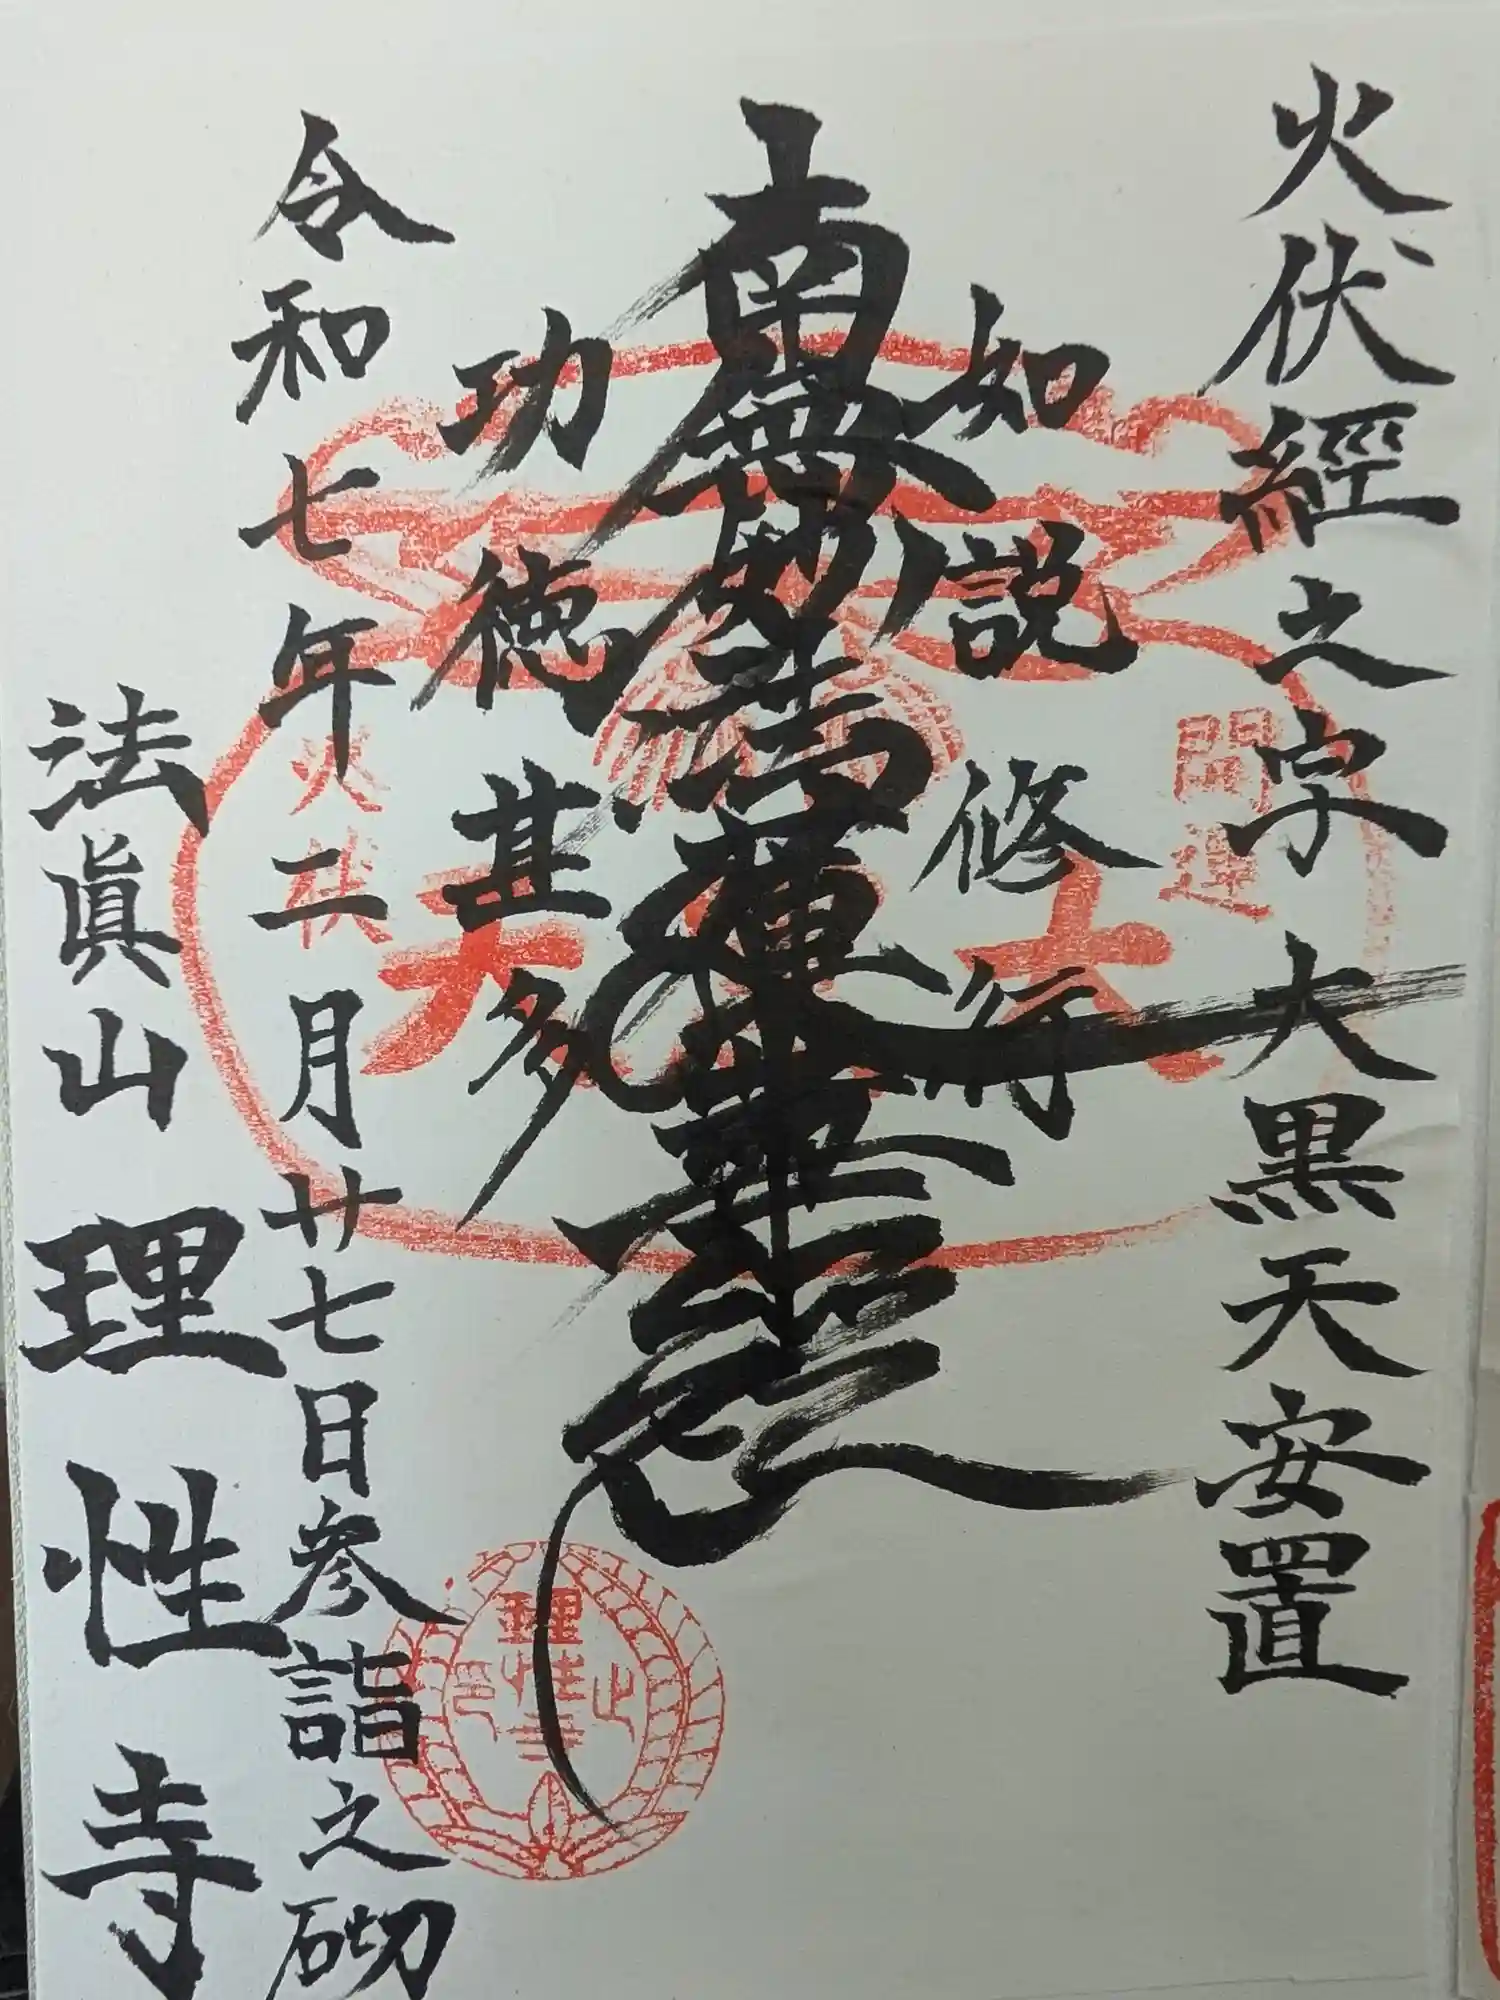 火伏経之字大黒天安置
如説修行
南無妙法蓮華経
功徳甚多
令和七年二月廿七日参詣之砌
法眞山 理性寺
開運
大
天
火伏
理性寺
之印